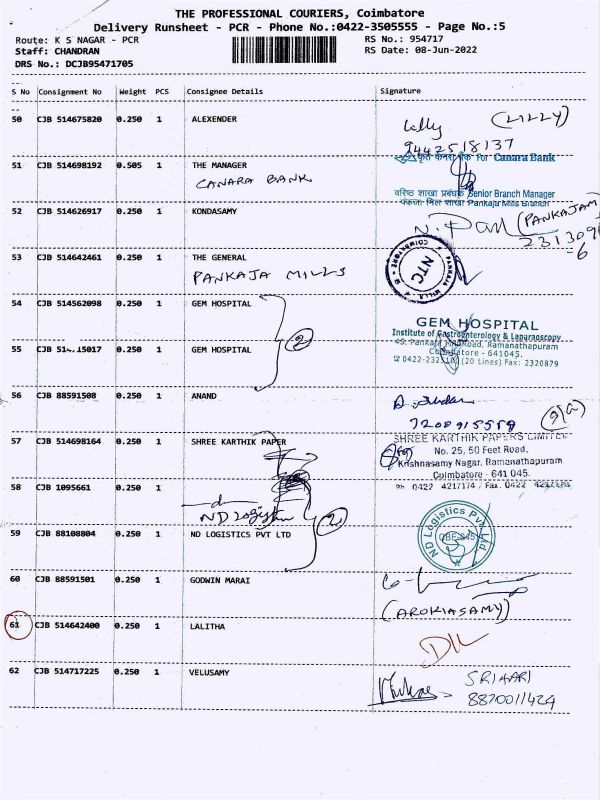 THE PROFESSIONAL COURIERS, Coimbatore
Delivery Runsheet - PCR - Phone No.:0422-3505555 - Page No.:5
Route: K S NAGAR - PCR
RS No.: 954717
Staff: CHANDRAN
RS Date: 08-Jun-2022
DRS No.: DCJB95471705
S No Consignment No Weight PCS Consignee Details Signature
50 CJB 514675820 0.250 1 ALEXENDER
Lilly (LILLY)
9442518137
51 CJB 514698192 0.505 1 THE MANAGER
CANARA BANK
कृते केनरा बैंक For Canara Bank
वरिष्ठ शाखा प्रबंधक Senior Branch Manager
पंकजा मिल शाखा Pankaja Mills Branch
52 CJB 514626917 0.250 1 KONDASAMY
(PANKAJAM)
53 CJB 514642461 0.250 1 THE GENERAL
PANKAJA MILLS
NTC
PANKAJA MILLS
COIMBATORE
54 CJB 514562098 0.250 1 GEM HOSPITAL
2
GEM HOSPITAL
Institute of Gastroenterology & Laparoscopy
45, Pankaja Mill Road, Ramanathapuram
Coimbatore - 641045.
(20 Lines) Fax: 2320879
55 GEM HOSPITAL 0.250 1
56 CJB 88591508 0.250 1 ANAND
7200915559
57 CJB 514698164 0.250 1 SHREE KARTHIK PAPER
SHREE KARTHIK PAPERS LIMITED
No. 25, 50 Feet Road,
Krishnasamy Nagar, Ramanathapuram
Coimbatore - 641 045.
Ph 0422 4217174, Fax. 0422
58 CJB 1095661 0.250 1
ND Logistics
2
59 CJB 88108804 0.250 1 ND LOGISTICS PVT LTD
ND Logistics Pvt Ltd
CBE-645
60 CJB 88591501 0.250 1 GODWIN MARAI
(AROKIASAMY)
61 CJB 514642400 0.250 1 LALITHA
DL
62 CJB 514717225 0.250 1 VELUSAMY
SRIHARI
8870011424